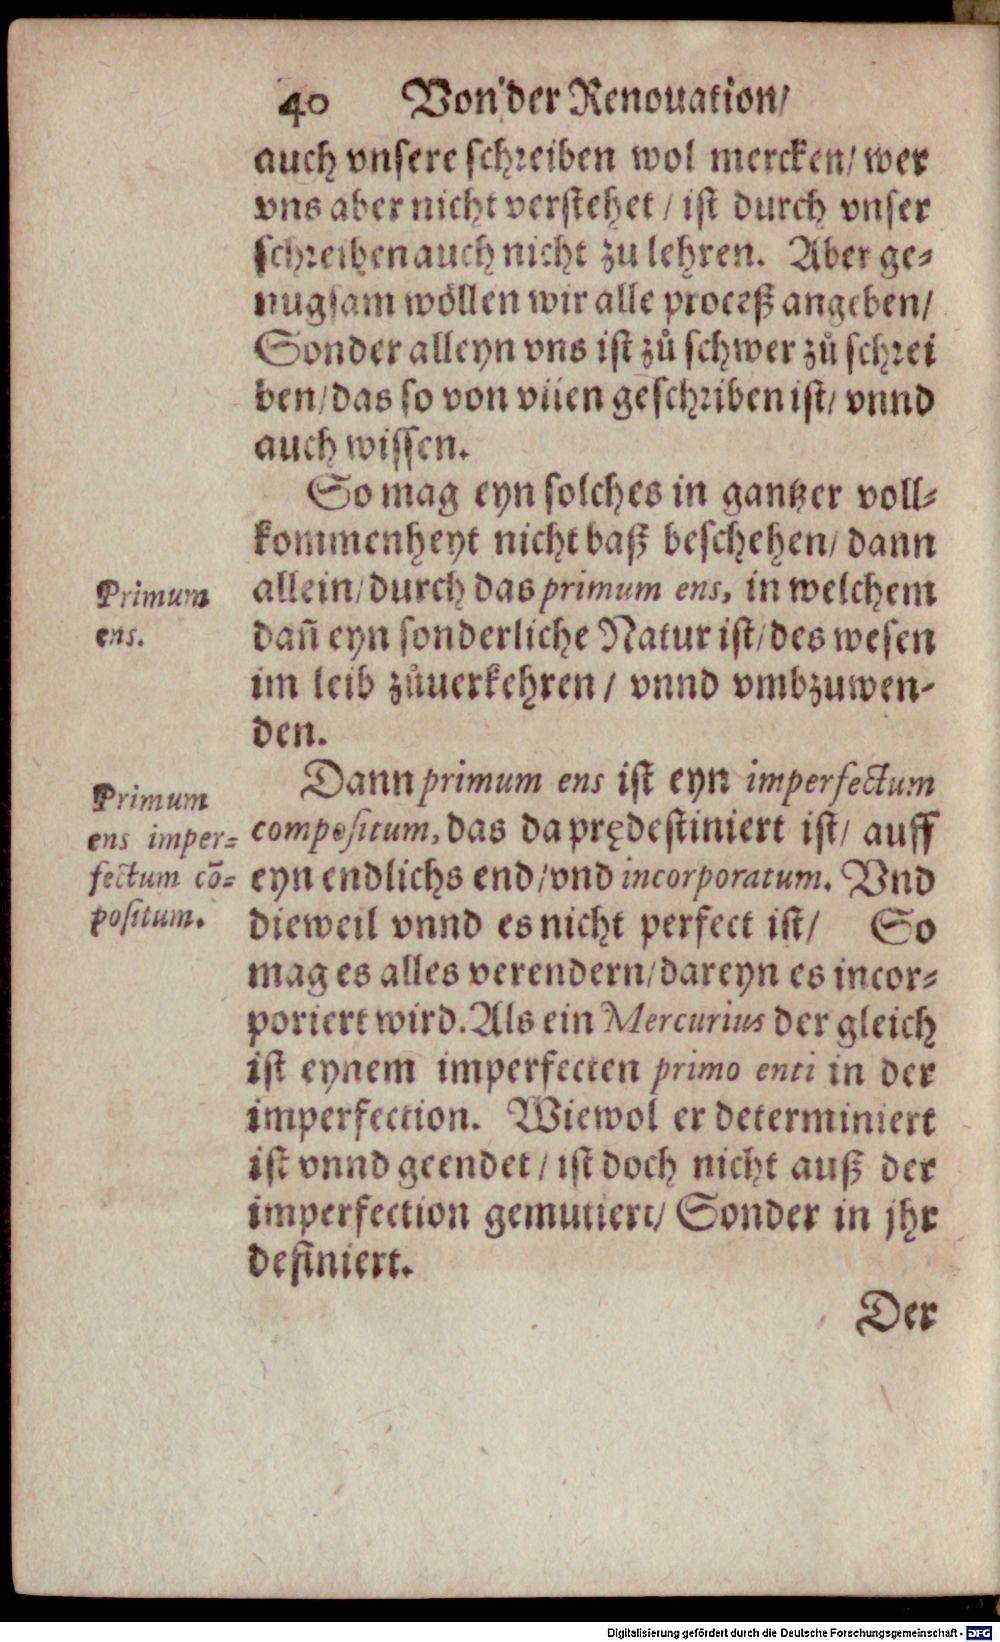 40 Von der Renouation/
auch vnsere schreiben wol mercken/ wer
vns aber nicht verstehet / ist durch vnser
schreiben auch nicht zu lehren. Aber ge-
nugsam wöllen wir alle proceß angeben/
Sonder alleyn vns ist zů schwer zů schrei
ben/ das so von viien geschriben ist/ vnnd
auch wissen.
So mag eyn solches in gantzer voll-
kommenheyt nicht baß beschehen/ dann
allein/ durch das primum ens, in welchem
Primum
ens.
dañ eyn sonderliche Natur ist/ des wesen
im leib zůuerkehren / vnnd vmbzuwen-
den.
Dann primum ens ist eyn imperfectum
Primum
ens imper-
fectum cō-
positum.
compositum, das da prędestiniert ist/ auff
eyn endlichs end/ vnd incorporatum. Vnd
dieweil vnnd es nicht perfect ist/ So
mag es alles verendern/ dareyn es incor-
poriert wird. Als ein Mercurius der gleich
ist eynem imperfecten primo enti in der
imperfection. Wiewol er determiniert
ist vnnd geendet / ist doch nicht auß der
imperfection gemutiert/ Sonder in jhr
definiert.
Der
Digitalisierung gefördert durch die Deutsche Forschungsgemeinschaft - DFG